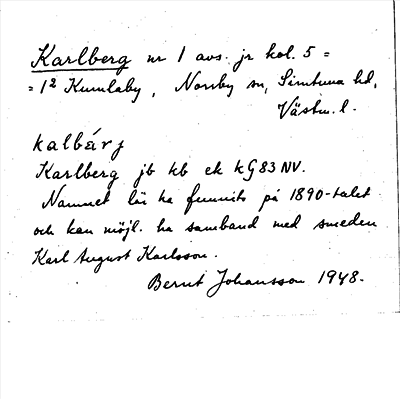 Karlberg nr 1 avs. jr kol. 5 =
= 1² Kumlaby, Norrby sn, Simtuna hd,
Västm. l.
kalbárj
Karlberg jb kb ek kG83NV.
Namnet lär ha funnits på 1890-talet
och kan möjl. ha samband med smeden
Karl August Karlsson.
Bernt Johansson 1948.